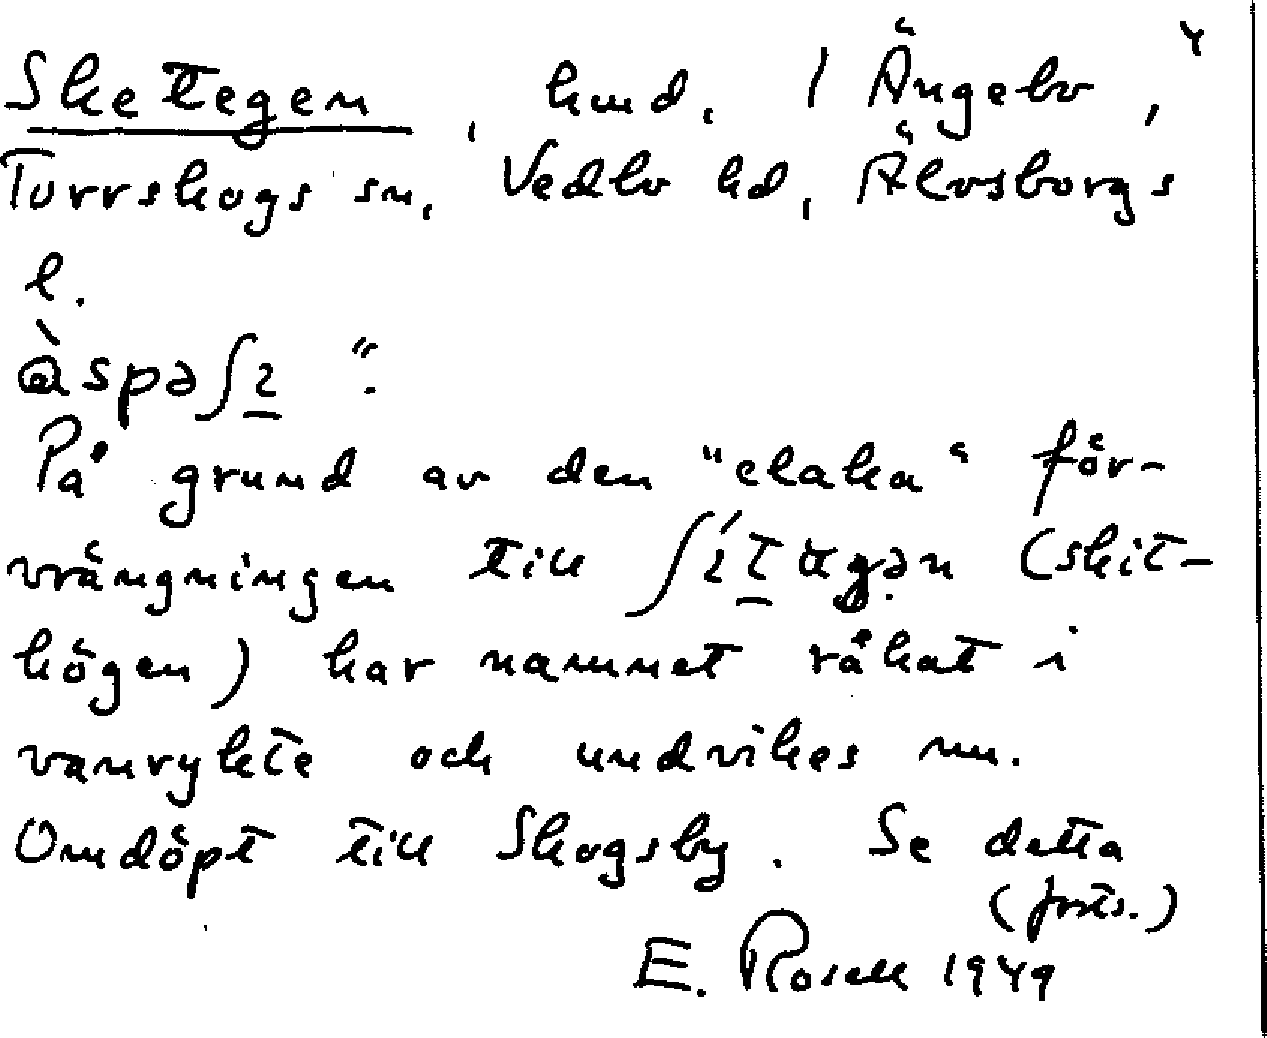 Sketegen, hmd. 1 Ängebo, 4
Torrskogs sn, Vedbo hd, Älvsborgs
l.
àspəʃɿ ":
På grund av den "elaka" för-
vrängningen till ʃɿ́tɑgən (skit-
högen) har namnet råkat i
vanrykte och undvikes nu.
Omdöpt till Skogsby. Se detta
(forts.)
E. Rosell 1949